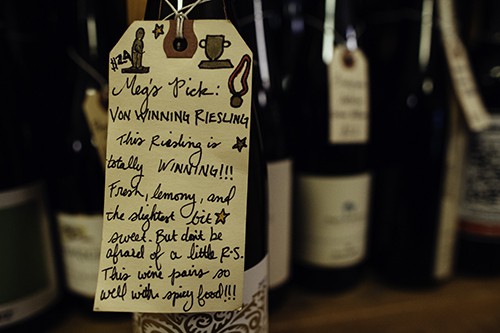 #24
Meg's Pick:
VON WINNING RIESLING
This Riesling is
totally WINNING!!!
Fresh, lemony, and
the slightest bit
sweet. But don't be
afraid of a little R.S.
This wine pairs so
well with spicy food!!!